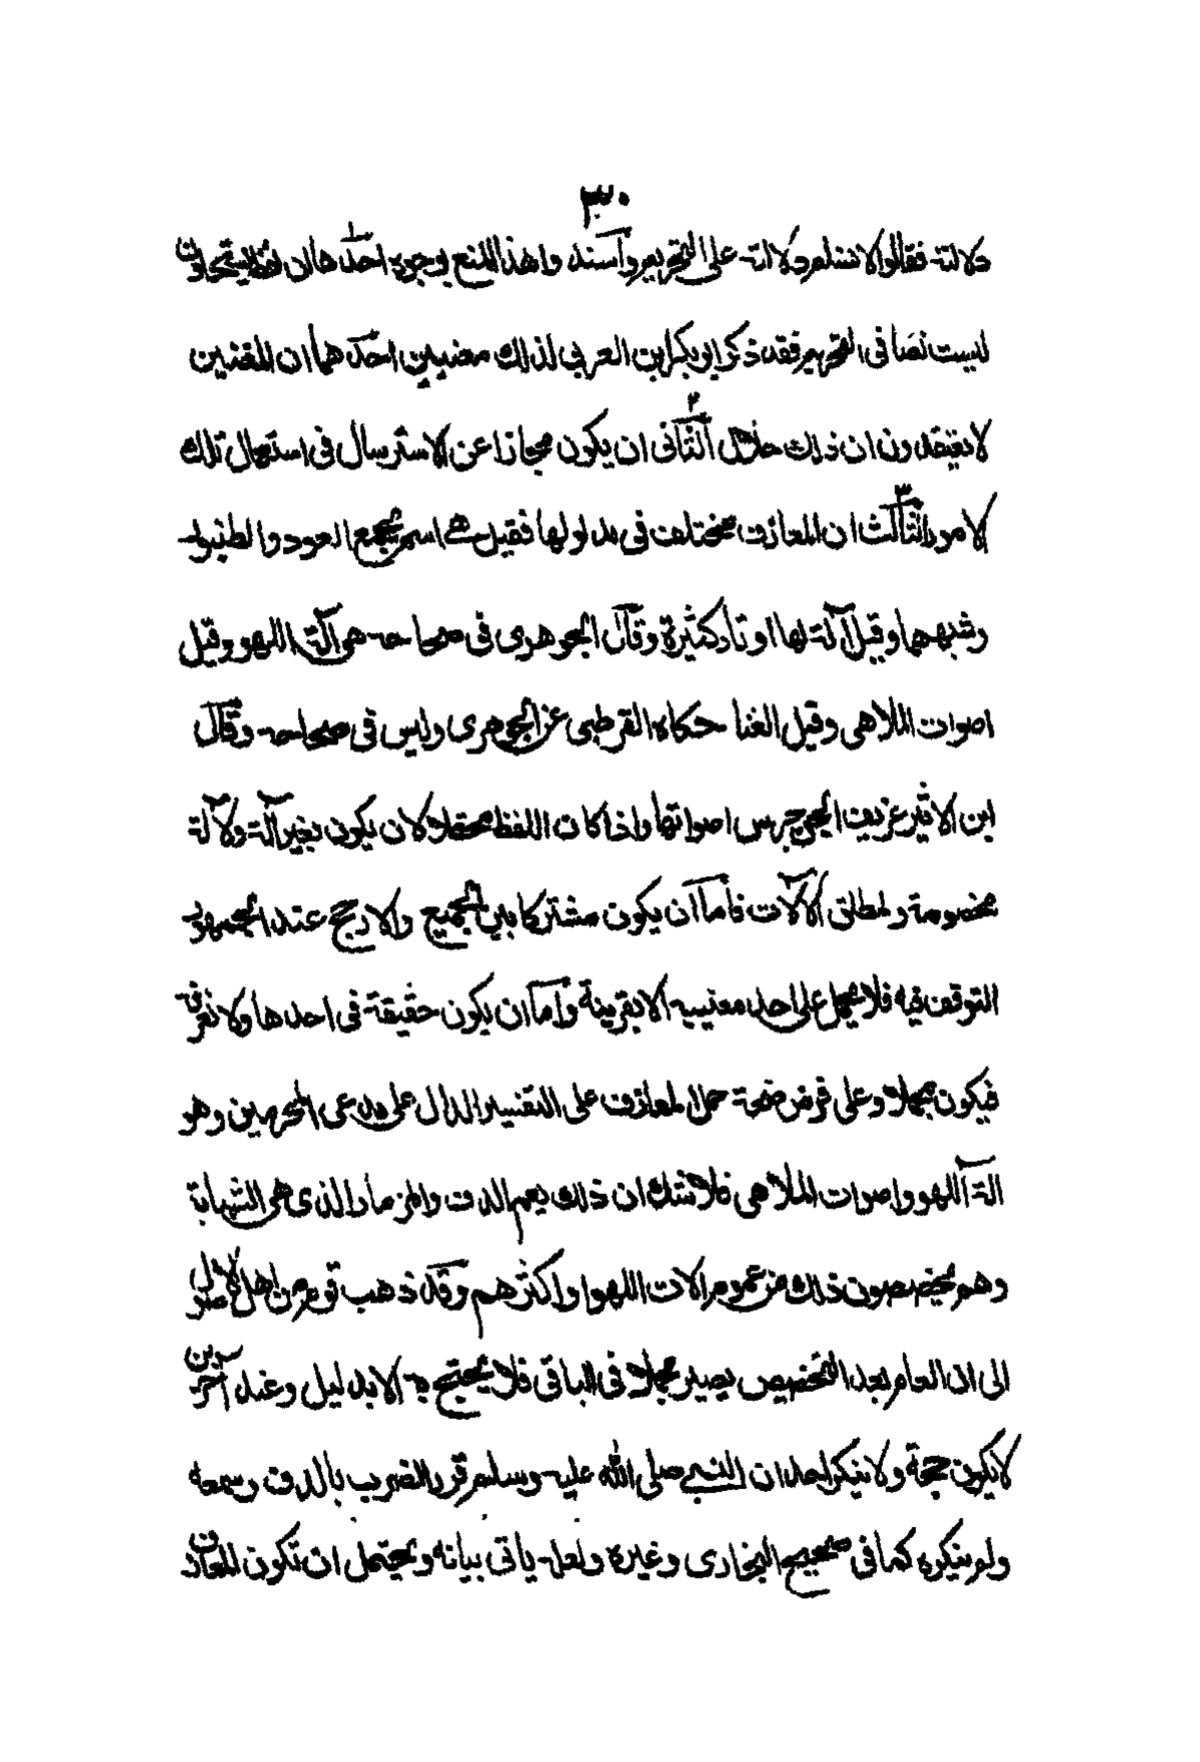 ٣٠
دلالته فقالوا لا نسلم دلالته على التحريم وأسند واهذا المنع بوجوه احدها ان لفظة يستحلون
ليست نصا فى التحريم فقد ذكر ابو بكر ابن العربي لذلك معنيين احدهما ان المعنيين
لا يعتقدون ان ذلك حلال الثانى ان يكون مجازا عن الاسترسال فى استعمال تلك
الامور الثالث ان المعازف مختلف فى مدلولها فقيل هى اسم يجمع العود والطنبور
وشبههما وقيل آلة لها اوتار كثيرة وقال الجوهرى فى صحاحه هى آلة اللهو وقيل
اصوات الملاهى وقيل الغنا حكاه القرطبى عن الجوهرى وليس فى صحاحه وقال
ابن الاثير عزيف الجن جرس اصواتها واذا كان اللفظ محتملا لان يكون بغير آلة ولآلة
مخصوصة ولمطلق الآلات فأما ان يكون مشتركا بين الجميع والارجح عند الجمهور
التوقف فيه فلا يحمل على احد معنييه الا بقرينة وأما ان يكون حقيقة فى احدها ولا نعرفه
فيكون مجملا وعلى فرض صحة حمل المعازف على التفسير الدال على مدعى المحرمين وهو
الة اللهو واصوات الملاهى فلا شك ان ذلك يعم الدف والمزمار الذى هى الشبابة
وهم يخصصون ذلك من عموم الات اللهو اواكثرهم وقد ذهب قوم من اهل الاصول
الى ان العام بعد التخصيص يصير مجملا فى الباقى فلا يحتج به الا بدليل وعند آخرين
لا يكون حجة ولا ينكر احد ان النبي صلى الله عليه وسلم قرر الضرب بالدف وسمعه
ولم ينكره كما فى صحيح البخارى وغيره ولعله ياتى بيانه ويحتمل ان تكون المعازف